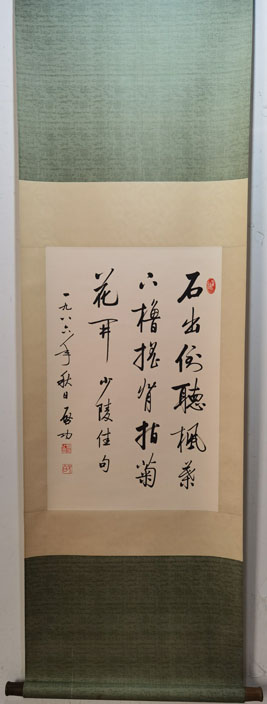 石出倒聽楓葉
下櫓搖背指菊
花開 少陵佳句
一九八六年秋日啟功